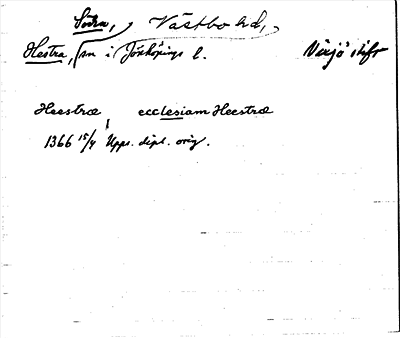 Södra, Västbo hd,
Hestra, sn i Jönköpings l. Växjö stift
Heestræ, ecclesiam Heestræ
1366 15/4 Upps. dipl. orig.